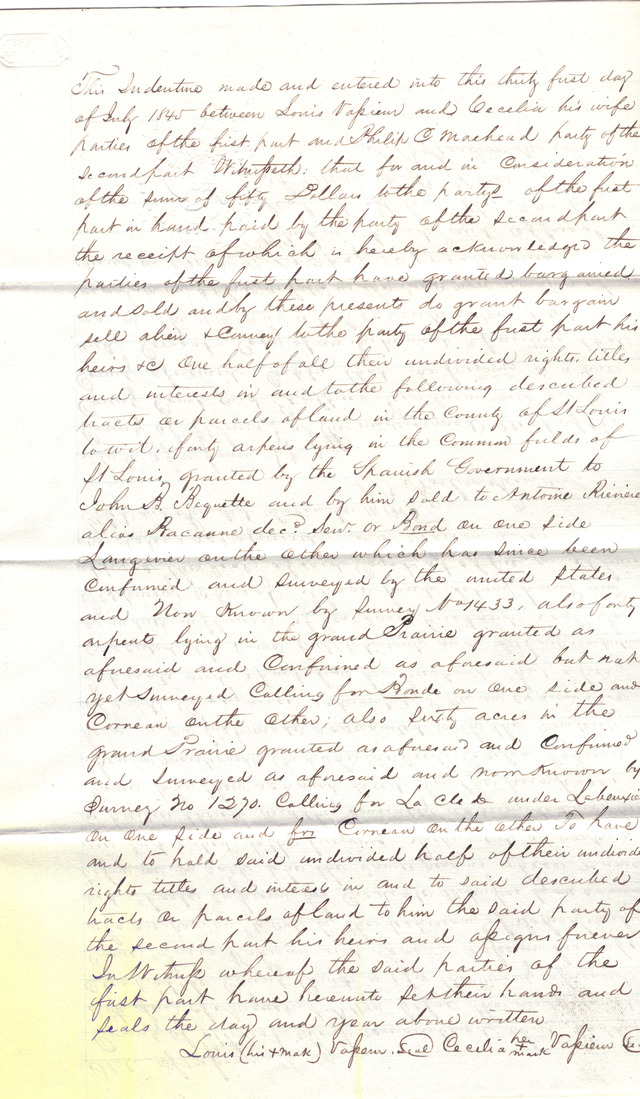 This Indenture made and entered into this thirty first day
of July 1845 between Louis Vasseur and Cecelia his wife
parties of the first part and Philip C Machead party of the
second part Witnesseth: that for and in Consideration
of the sum of fifty Dollars to the partys of the first
part in hand paid by the party of the second part
the receipt of which is hereby acknowledged the
parties of the first part have granted bargained
and sold and by these presents do grant bargain
sell alien & Convey to the party of the first part his
heirs &c One half of all their undivided rights, titles
and interests in and to the following described
tracts or parcels of land in the County of St Louis
to wit, forty arpens lying in the Common fields of
St Louis, granted by the Spanish Government to
John B. Bequette and by him sold to Antoine Riviere
alias Racanne decd. or Bond on one side
on the other which has since been
Confirmed and surveyed by the united States
and Now Known by Survey No 1433, also forty
arpents lying in the grand Prairie granted as
aforesaid and Confirmed as aforesaid but not
yet Surveyed Calling for Bonde on One side and
Corneau on the other; also sixty acres in the
grand Prairie granted as aforesaid and Confirmed
and Surveyed as aforesaid and now Known by
Survey No 1270. Calling for La clede under
on One side and for Corneau on the other To have
and to hold said undivided half of their undivide
rights titles and interests in and to said described
tracts or parcels of land to him the said party of
the second part his heirs and assigns forever
In Witness whereof the said parties of the
first part have hereunto set their hands and
seals the day and year above written
Louis (his + mark) Vasseur. Seal Cecelia her + mark Vasseur